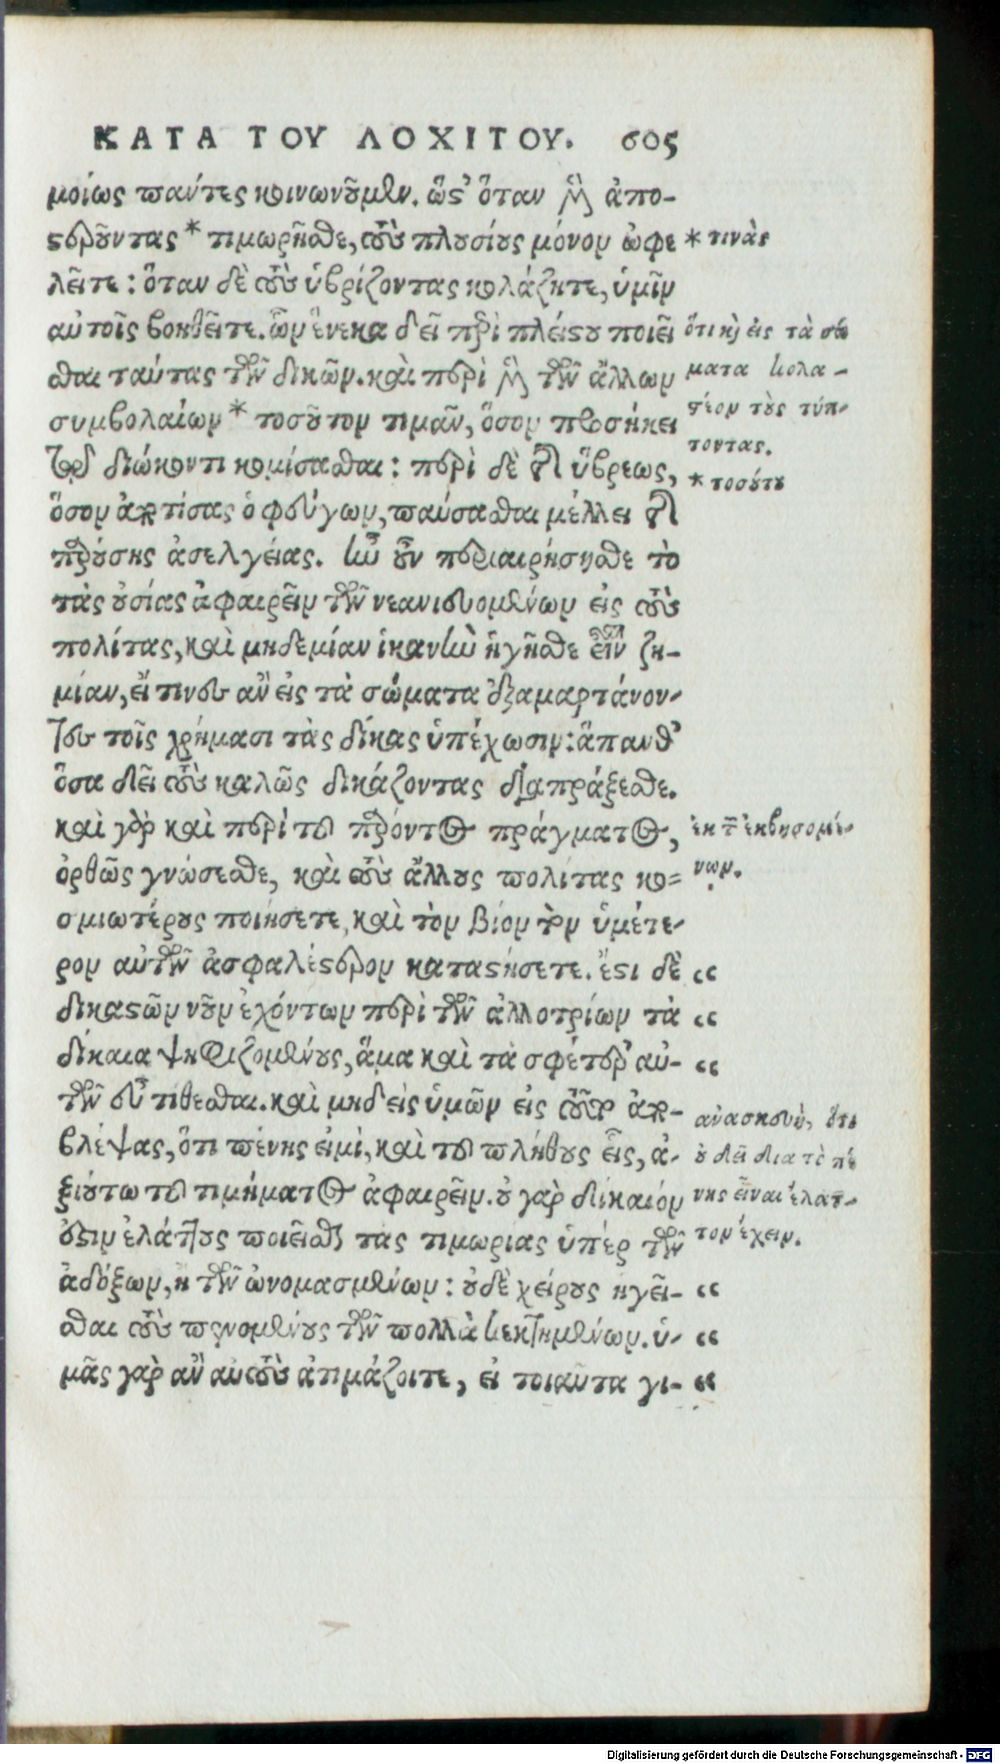 ΚΑΤΑ ΤΟΥ ΛΟΧΙΤΟΥ. 605
μοίως πάντες κοινωνοῦμεν. ὥστ' ὅταν μὲν ἀπο-
στεροῦντας * τιμωρῆσθε, τοὺς πλουσίους μόνον ὠφε
λεῖτε: ὅταν δὲ τοὺς ὑβρίζοντας κολάζητε, ὑμῖν
αὐτοῖς βοηθεῖτε. ὧν ἕνεκα δεῖ περὶ πλείστου ποιεῖ
σθαι ταύτας τῶν δικῶν. καὶ περὶ μὲν τῶν ἄλλων
συμβολαίων * τοσοῦτον τιμᾶν, ὅσον προσήκει
τῷ διώκοντι κομίσασθαι: περὶ δὲ τῆς ὕβρεως,
ὅσον ἀποτίσας ὁ φεύγων, παύσασθαι μέλλει τῆς
παρούσης ἀσελγείας. ἢν οὖν περιαιρήσησθε τὸ
τὰς οὐσίας ἀφαιρεῖν τῶν νεανιευομένων εἰς τοὺς
πολίτας, καὶ μηδεμίαν ἱκανὴν ἡγῆσθε εἶναι ζη-
μίαν, εἵ τινες ἂν εἰς τὰ σώματα ἐξαμαρτάνον-
τες τοῖς χρήμασι τὰς δίκας ὑπέχωσιν: ἅπανθ'
ὅσα δεῖ τοὺς καλῶς δικάζοντας διαπράξεσθε.
καὶ γὰρ καὶ περὶ τοῦ παρόντος πράγματος,
ὀρθῶς γνώσεσθε, καὶ τοὺς ἄλλους πολίτας κο=
σμιωτέρους ποιήσετε, καὶ τὸν βίον τὸν ὑμέτε-
ρον αὐτῶν ἀσφαλέστερον καταστήσετε. ἔστι δὲ “
δικαστῶν νοῦν ἐχόντων περὶ τῶν ἀλλοτρίων τὰ “
δίκαια ψηφιζομένους, ἅμα καὶ τὰ σφέτερ' αὐ- “
τῶν εὖ τίθεσθαι. καὶ μηδεὶς ὑμῶν εἰς τοῦτ' ἀπο-
βλέψας, ὅτι πένης εἰμὶ, καὶ τοῦ πλήθους εἷς, ἀ-
ξιούτω τοῦ τιμήματος ἀφαιρεῖν. οὐ γὰρ δίκαιόν
ἐστιν ἐλάττους ποιεῖσθαι τὰς τιμωρίας ὑπὲρ τῶν
ἀδόξων, ἢ τῶν ὠνομασμένων: οὐδὲ χείρους ἡγεῖ- “
σθαι τοὺς πενομένους τῶν πολλὰ κεκτημένων. ὑ- “
μᾶς γὰρ ἂν αὐτοὺς ἀτιμάζοιτε, εἰ τοιαῦτα γι- “
* τινὰς
ὅτι καὶ εἰς τὰ σώ
ματα κολα-
στέον τοὺς τύπ-
τοντας.
* τοσούτου
ἐκ τῶν ἐκβησομέ-
νων.
ἀνασκευὴ, ὅτι
οὐ δεῖ διὰ τὸ πέ
νης εἶναι ἔλατ-
τον ἔχειν.
Digitalisierung gefördert durch die Deutsche Forschungsgemeinschaft - DFG